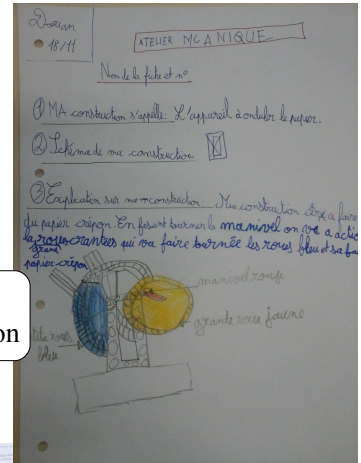 Dorian
18/11
ATELIER MCANIQUE
Nom de la fiche et n°
① MA construction s'appelle: L'appareil à onduler le papier.
② Schéma de ma construction
③ Explication sur ma construction: Ma construction sers a faire
du papier crépon. En fesant tourner la manivel on va a actio
la roues crantées qui va faire tournée les roues bleu et sa fai
grand
papier crépon
manivel rouge
grande roue jaune
tite roues
bleu
on